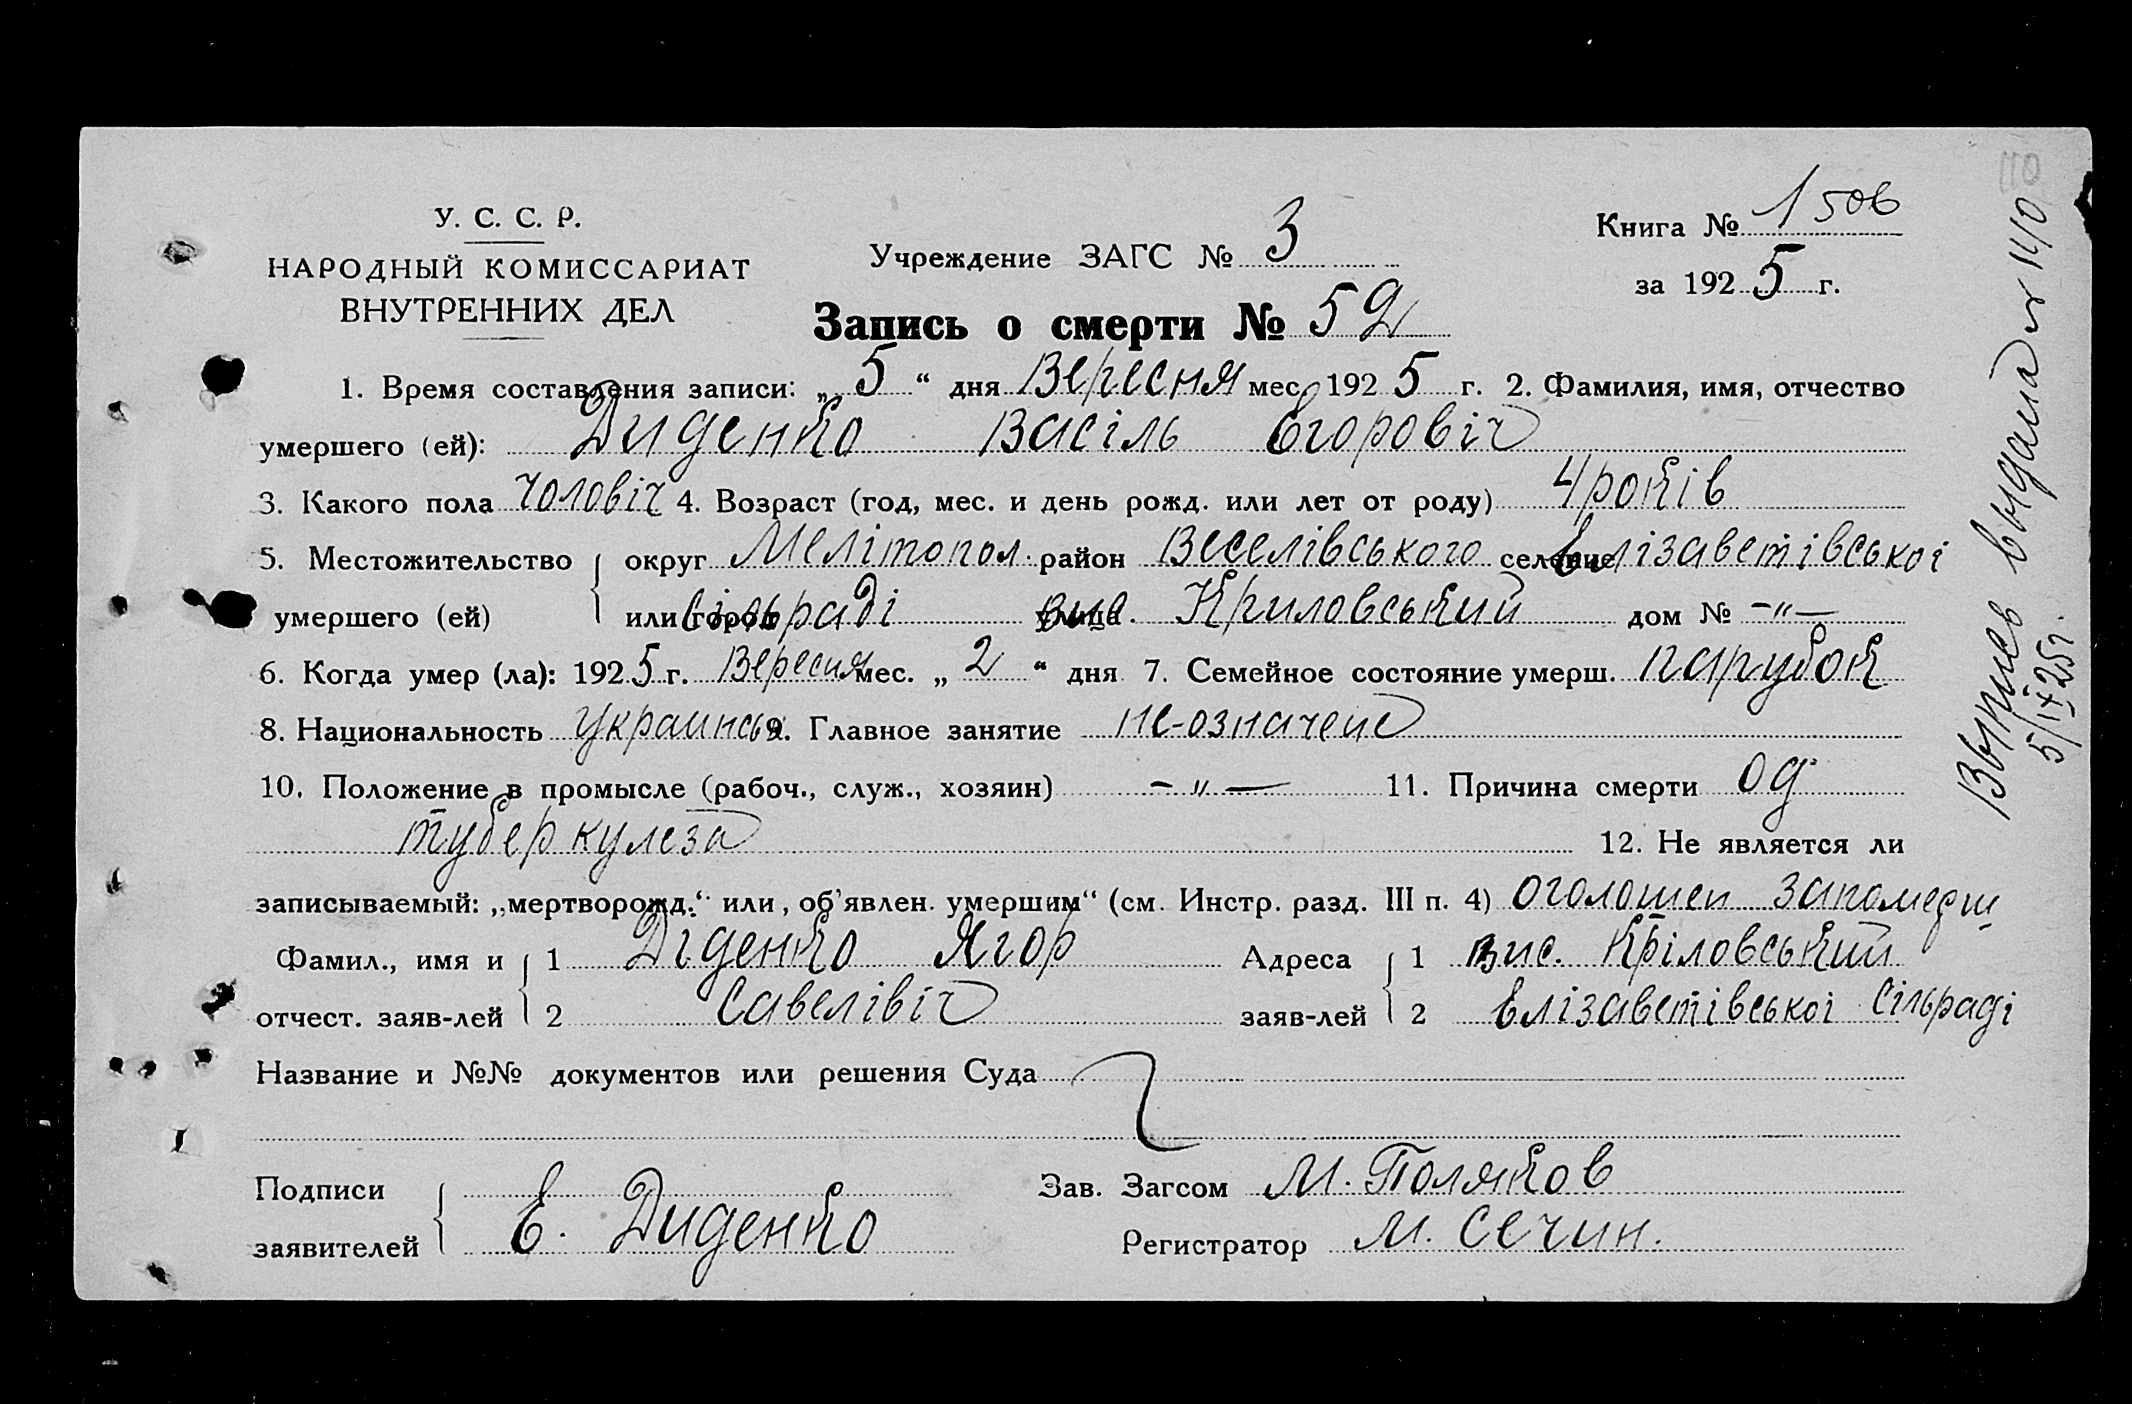 У. С. С. Р.
НАРОДНЫЙ КОМИССАРИАТ
ВНУТРЕННИХ ДЕЛ
Учреждение ЗАГС № 3
Книга № 1 506
за 1925 г.
Запись о смерти № 52
1. Время составления записи: „5“ дня Вересня мес. 1925 г. 2. Фамилия, имя, отчество
умершего (ей): Диденко Васіль Егоровіч
3. Какого пола чоловіч 4. Возраст (год, мес. и день рожд. или лет от роду) 4 років
5. Местожительство округ Мелітопол. район Веселівського селение Елізаветівськоі
умершего (ей) или город сільраді улица вис. Криловський дом № -"-
6. Когда умер (ла): 1925 г. Вересня мес. „2“ дня 7. Семейное состояние умерш. парубок
8. Национальность украинсь 9. Главное занятие не-означено
10. Положение в промысле (рабоч., служ., хозяин) -"- 11. Причина смерти од
туберкулеза 12. Не является ли
записываемый: „мертворожд.“ или, об'явлен. умершим“ (см. Инстр. разд. III п. 4) оголошен запомерш
Фамил., имя и 1 Діденко Ягор Адреса 1 вис. Кріловський
отчест. заяв-лей 2 Савелівіч заяв-лей 2 Елізаветівськоі Сільраді
Название и №№ документов или решения Суда
Подписи Зав. Загсом М. Поляков
заявителей Е. Диденко Регистратор М. Сечин.
Выпись выдана № 140
5/IX 25 г.
110